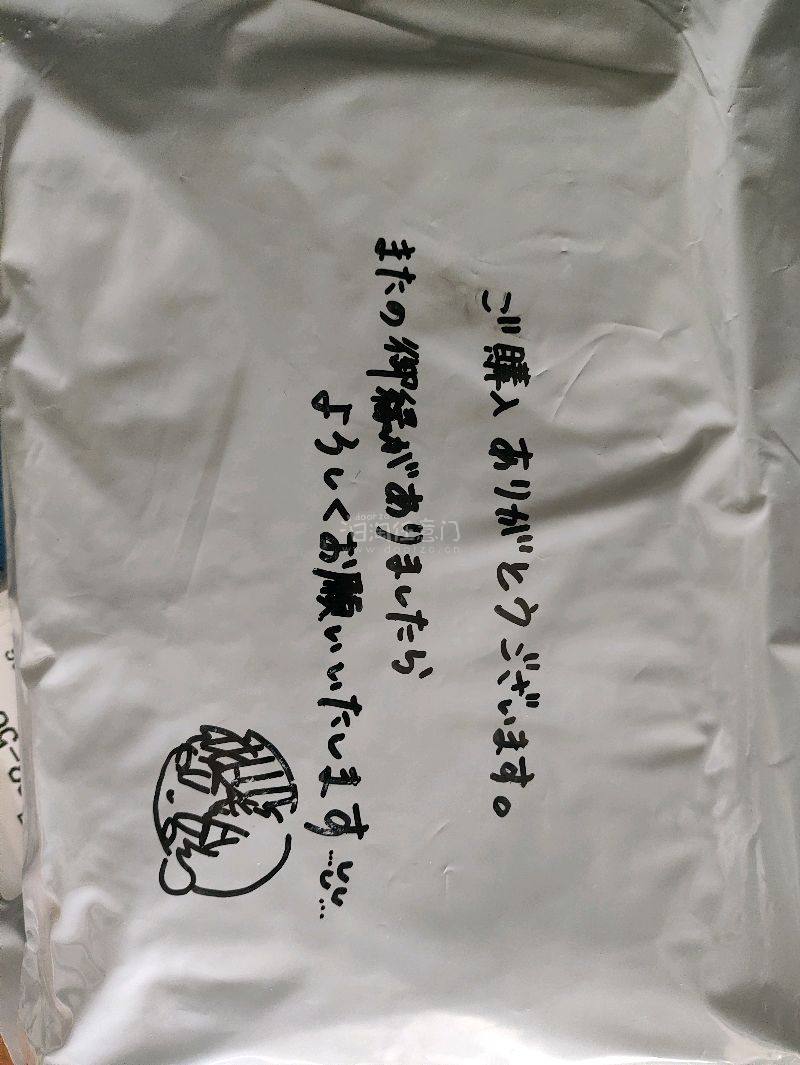 ご購入ありがとうございます。
またの御縁がありましたら
よろしくお願いいたします
doorzo
www.doorzo.cn